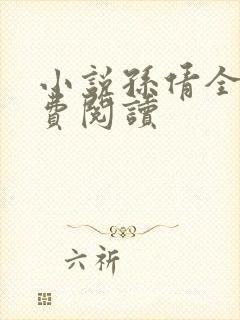 小說孫倩全
費閱讀
六祈